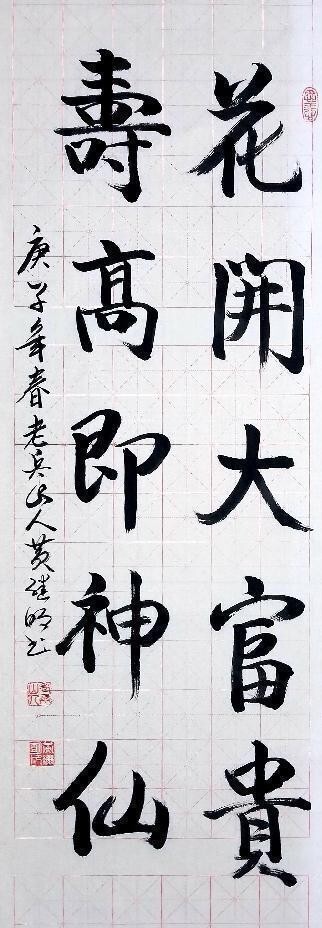 花開大富貴
壽高即神仙
庚子年春老兵山人黄継明书